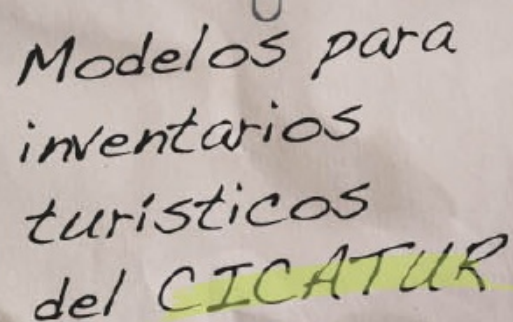 Modelos para
inventarios
turísticos
del CICATUR